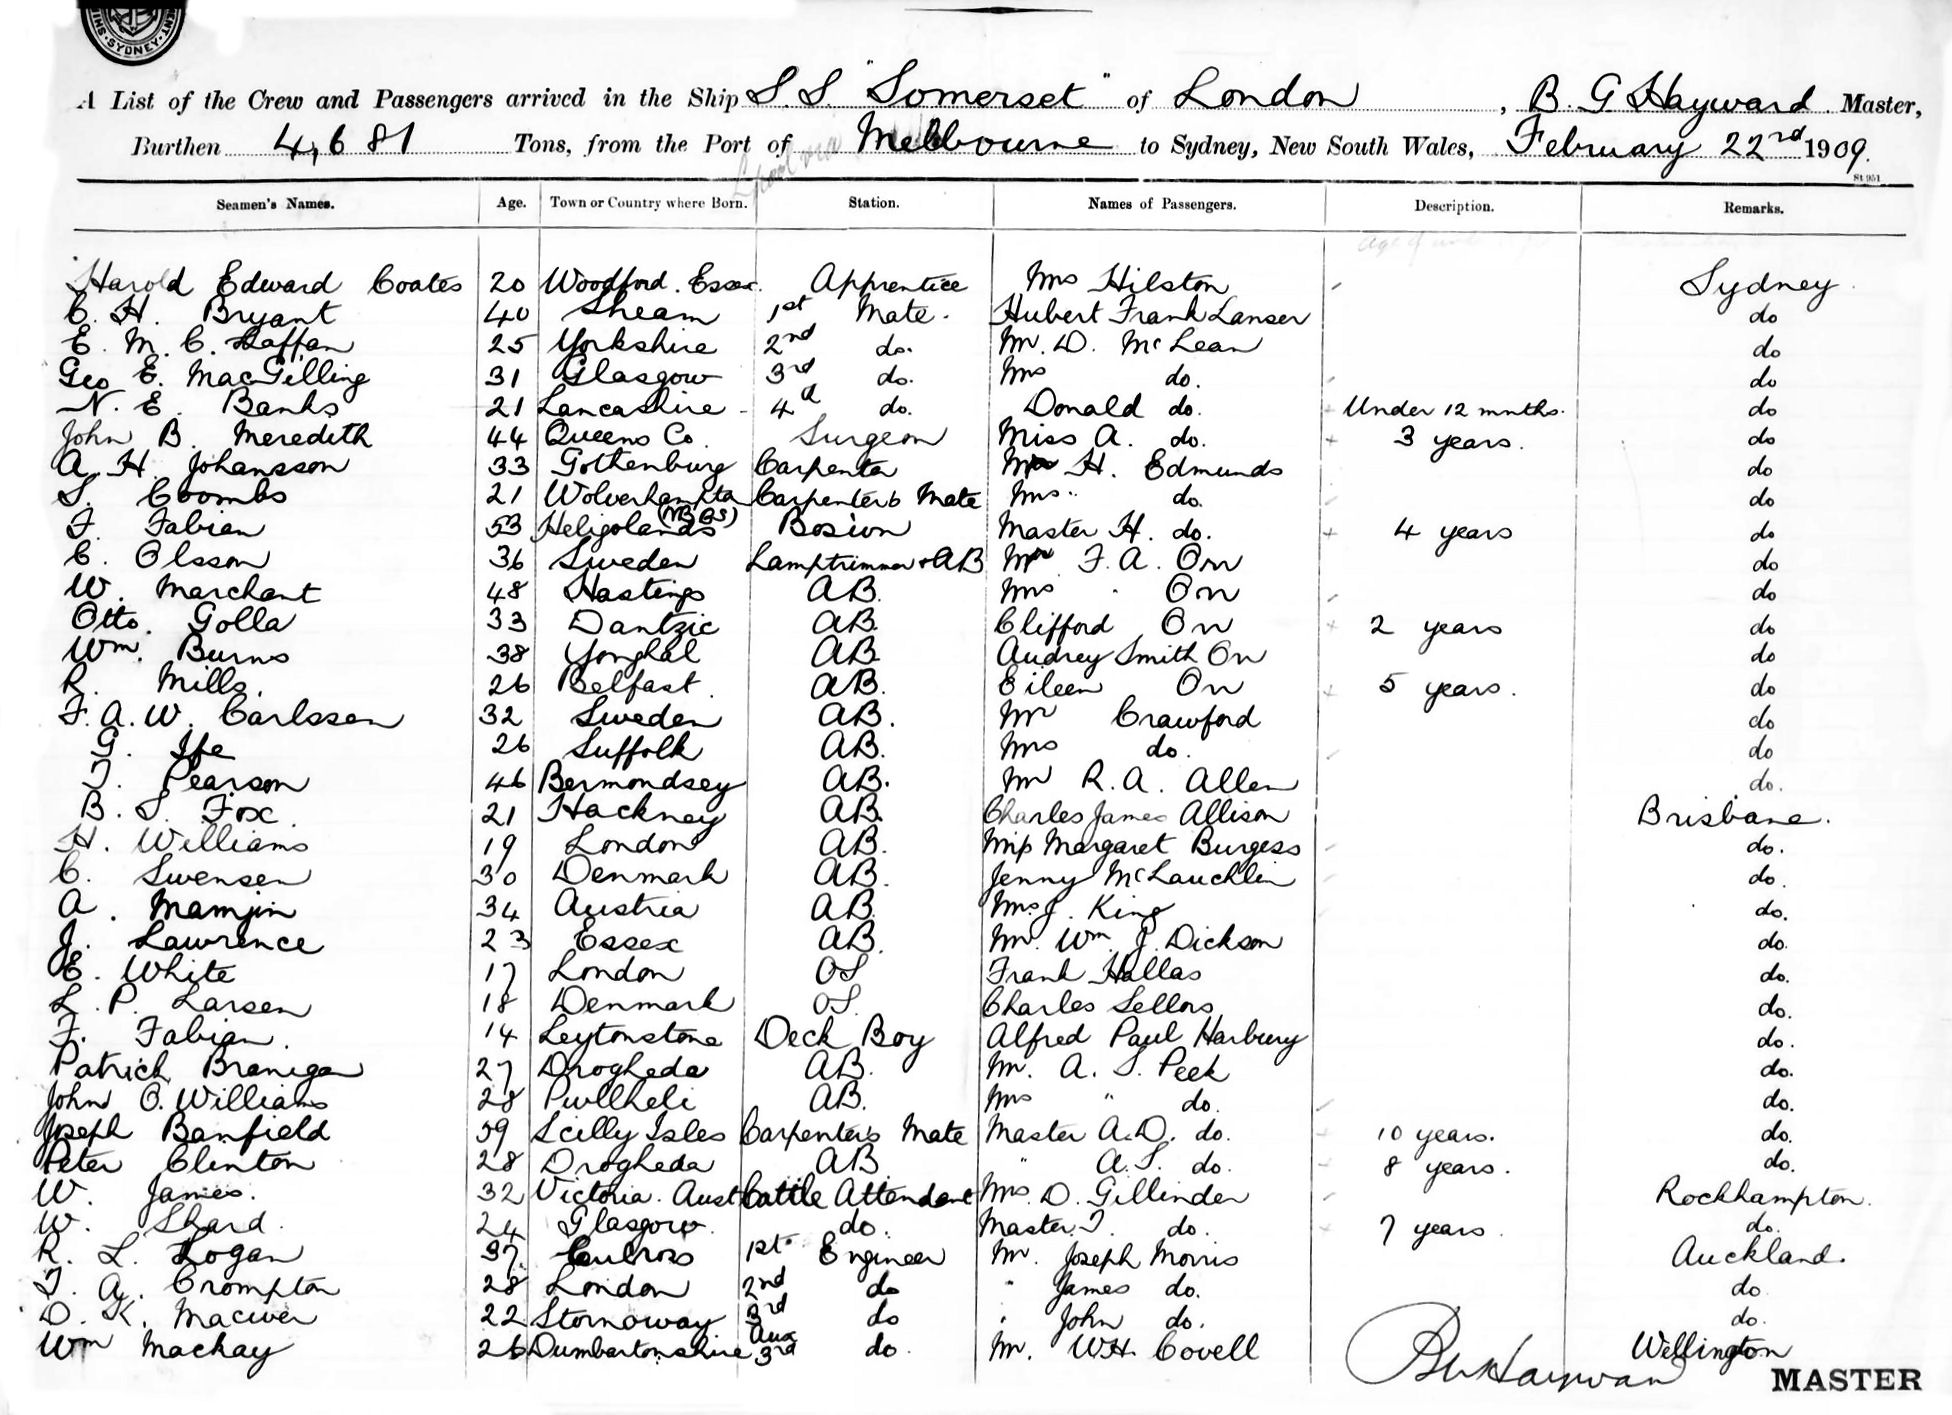 SYDNEY
A List of the Crew and Passengers arrived in the Ship S. S. "Somerset" of London, B. G Hayward Master,
Burthen 4,681 Tons, from the Port of Melbourne to Sydney, New South Wales, February 22nd 1909.
St 951
Seamen's Names. Age. Town or Country where Born. Station. Names of Passengers. Description. Remarks.
Harold Edward Coates 20 Woodford. Essex. Apprentice Mrs Hilston Sydney
C. H. Bryant 40 Sheam 1st Mate. Hubert Frank Lanser do
E. M. C. Laffan 25 Yorkshire 2nd do. Mr. D. McLean do
Geo E. MacGilling 31 Glasgow 3rd do. Mrs do. do
N. E. Banks 21 Lancashire 4th do. Donald do. Under 12 mnths. do
John B. Meredith 44 Queens Co. Surgeon Miss A. do. 3 years. do
A. H. Johansson 33 Gothenburg Carpenter Mr H. Edmunds do
S. Coombs 21 Wolverhampton Carpenters Mate Mrs " do. do
F. Fabian 53 Heligoland (NBBS) Bosun Master H. do. 4 years do
C. Olsson 36 Sweden Lamptrimmer & AB Mr F. A. Orr do
W. Marchant 48 Hastings AB. Mrs " Orr do
Otto. Golla 33 Dantzic AB. Clifford Orr 2 years do
Wm. Burns 38 Yonghal AB Audrey Smith Orr do
R. Mills. 26 Belfast. AB. Eileen Orr 5 years. do
F. A. W. Carlssen 32 Sweden AB. Mr Crawford do
G. Ife 26 Suffolk AB. Mrs do. do
T. Pearson 46 Bermondsey AB. Mr R. A. Allen do.
B. S. Fox. 21 Hackney AB. Charles James Allison Brisbane.
H. Williams 19 London AB. Miss Margaret Burgess do.
C. Swensen 30 Denmark AB. Jenny McLauchlin do.
A. Mamjin 34 Austria AB. Mrs. J. King do.
J. Lawrence 23 Essex AB. Mr. Wm. J. Dickson do.
E. White 17 London OS Frank Hallas do.
L. P. Larsen 18 Denmark OS. Charles Sellors do.
F. Fabian. 14 Leytonstone Deck Boy Alfred Paul Harbury do.
Patrick Branigan 27 Drogheda AB. Mr. A. S. Peek do.
John O. Williams 28 Pwllheli AB. Mrs " do. do.
Joseph Banfield 59 Scilly Isles Carpenters Mate Master A.D. do. 10 years. do.
Peter Clinton 28 Drogheda AB " A.S. do. 8 years. do.
W. James. 32 Victoria. Aust Cattle Attendant Mrs. D. Gillinder Rockhampton.
W. Shard. 24 Glasgow. do. Master T. do. 7 years do.
R. L. Logan 37. Culross 1st Engineer Mr. Joseph Morris Auckland.
T. A. Crompton 28 London 2nd do " James do. do
D. K. Maciver 22 Stornoway 3rd do " John do. do.
Wm Mackay 26 Dumbartonshire Aux 3rd do. Mr. WH. Covell Wellington
MASTER